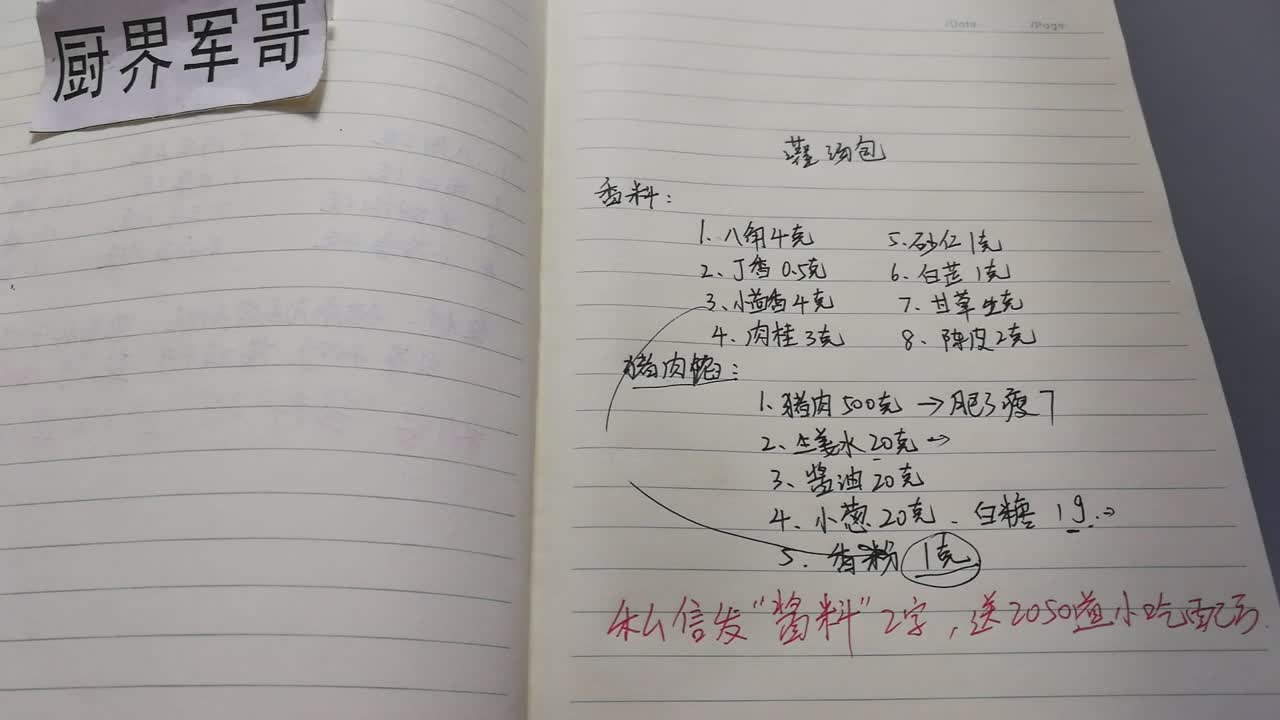 厨界军哥
/Date /Page
灌汤包
香料:
1.八角4克 5.砂仁1克
2、丁香0.5克 6.白芷1克
3.小茴香4克 7.甘草
4.肉桂3克 8.陈皮2克
猪肉馅:
1.猪肉500克→肥3瘦7
2、生姜水20克→
3、酱油20克
4、小葱20克、白糖1g.→
5.香粉1克
私信发"酱料"2字,送2050道小吃配方.